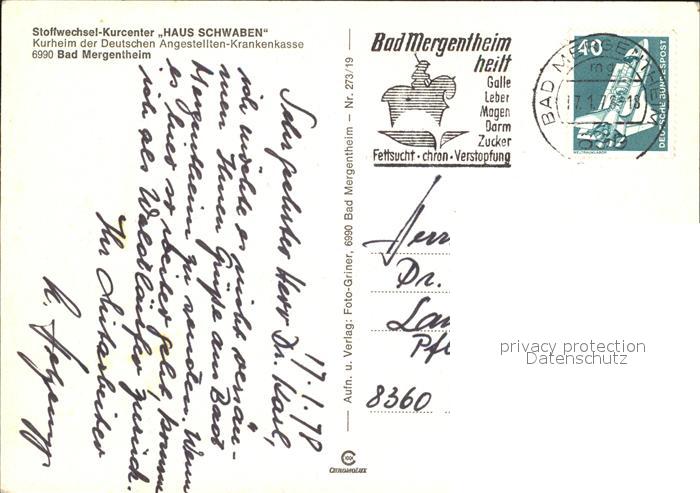 Stoffwechsel-Kurcenter „HAUS SCHWABEN“
Kurheim der Deutschen Angestellten-Krankenkasse
6990 Bad Mergentheim
17.1.78
Sehr geehrter Herr Dr. Karl,
ich möchte es nicht versäu-
men Ihnen Grüße aus Bad
Mergentheim zu senden. Wenn
es hier so weiter geht, komme
ich als Waldläufer zurück.
Ihr Mitarbeiter
Aufn. u. Verlag: Foto-Griner, 6990 Bad Mergentheim – Nr. 273/19
CHROMOLUX
Bad Mergentheim
heilt
Galle
Leber
Magen
Darm
Zucker
Fettsucht · chron · Verstopfung
BAD MERGENTHEIM
17.1.78-18
40
DEUTSCHE BUNDESPOST
WELTRAUMLABOR
Herr
Dr.
Lan
Pfl
8360
privacy protection
Datenschutz